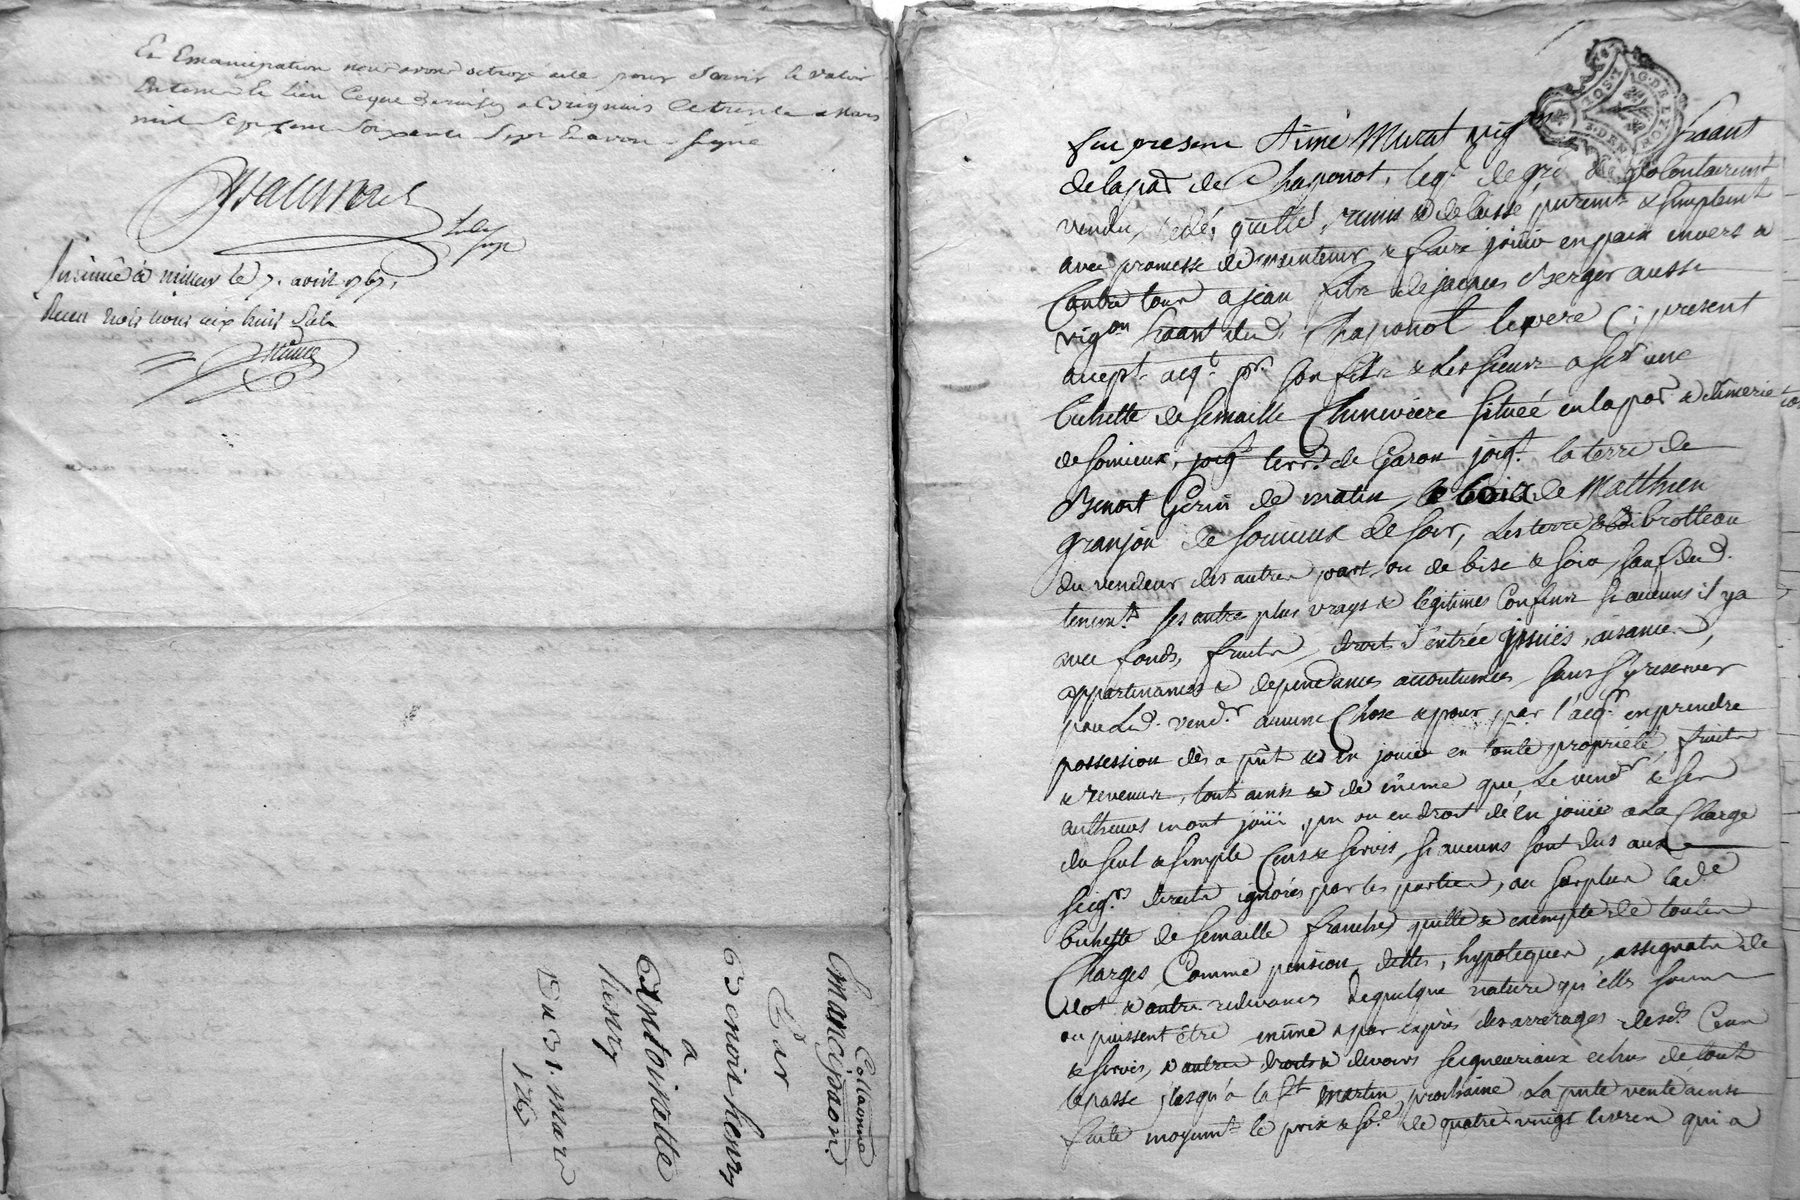 Et Emancipation nous avons octroyé acte pour servir & valoir
En tems & lieu Ce que de raison a Brignais Le trente Mars
mil sept cent soixante sept Et avon signé
Insinué à le 7. avril 1767,
Recu trois livres dix huit sols
Collationné
Emancipaon.
Par
Benoit henry
a
Antoinette
henry
Du 31. mars
1767
G. DE LYON
Fut present Aimé Murat vig.on haant
de la par.e de Chaponot, leq.l de gré & volontairemt
vendu, cedé, quitté, remis & delaissé puremt & simplemt
avec promesse de maintenir & faire joüir en paix envers &
Contre tous a jean fils de jacques Berger aussi
vig.on haant dud. Chaponot le pere Ci present
accept. acq.t p.r son fils & les sieurs a s.r une
bichette de semaille Cheneviere située en la par.e & dimerie
de soucieux, terr.e de Garon joig.t la terre de
Benoit Gerin de matin, le bois de Matthieu
granjon de soucieux de soir, les terre & brotteau
du vendeur des autres part, ou de bise & soir, sauf dud.
tenemt ses autres plus vrays & légitimes Confins si aucuns il y a
avec fonds, fruits, droits d'entrée issües, aisances,
appartenances & dependances accoutumées sans s'y reserver
par led. vend.r aucune Chose & pour par l'acq.r en prendre
possession dès a pñt & en jouir en toute propriété, fruits
& revenus, tout ainsi & de même que le vend.r & ses
autheurs in ont joüi, pu ou en droit de en joüir a la Charge
du seul & simple Cens & servis, si aucuns sont dus aux
seig.rs directs ignorés par les parties, au surplus lad.e
bichette de semaille franche, quitte & exempte de toutes
Charges, Comme pension, dettes, hypoteques, assignats de
dot & autres redevances de quelque nature qu'elles soient
ou puissent être même & par exprès des arrerages desds Cens
& servis, & autres droits & devoirs seigneuriaux echus de tout
le passé jusqu'à la st martin prochaine La pnte vente ainsi
faite moyent le prix & so.e de quatre vingt livres qui a